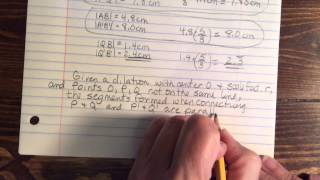 |AB| = 4.8cm
|A'B'| = 8.0cm
4.8(5/3) = 8.0cm
|QB| = 1.4cm
|Q'B'| = 2.4cm
1.4(5/3) = 2.3
Given a dilation with center O & scale factor r,
and points O, P & Q not on the same line,
the segments formed when connecting
P & Q and P' & Q' are para